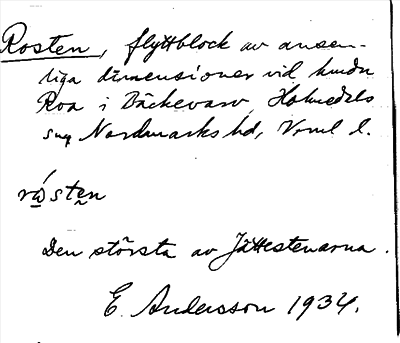 Rosten, flyttblock av ansen-
liga dimensioner vid
Roa i Bäckevarv, Holmedals
sn, Nordmarks hd, Vrml l.
rẃstęn
Den största av Jättestenarna.
E. Andersson 1934.